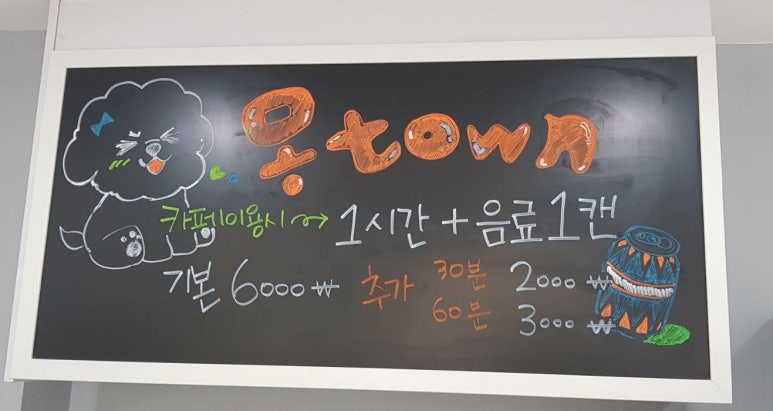 뭉town
카페이용시 → 1시간 + 음료 1캔
기본 6000₩ 추가 30분 2000₩
60분 3000₩